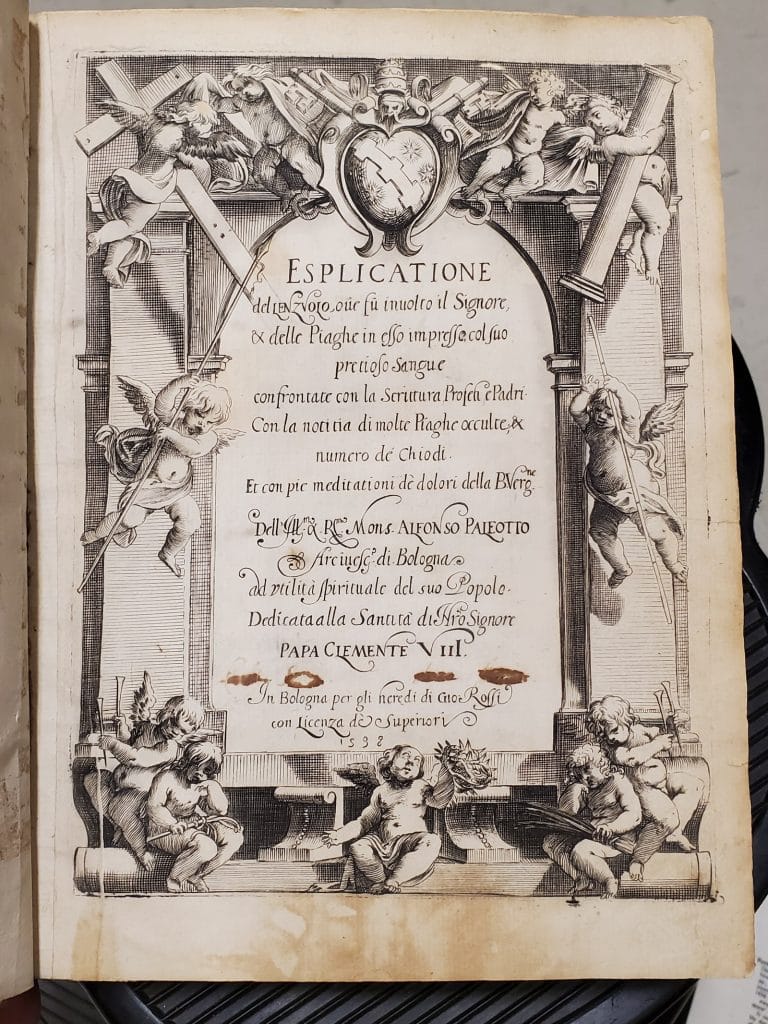 ESPLICATIONE
del LENZVOLO, oue fù inuolto il Signore,
& delle Piaghe in esso impresse col suo
pretioso Sangue
confrontate con la Scrittura Profeti e Padri
Con la notitia di molte Piaghe occulte, &
numero de' Chiodi.
Et con pie meditationi de dolori della B. Verg.ne
Dell' Ill.mo & R.mo Mons. ALFONSO PALEOTTO
Arciuesc.o di Bologna
ad vtilità spirituale del suo Popolo.
Dedicata alla Santità di Nro Signore
PAPA CLEMENTE VIII.
In Bologna per gli heredi di Gio: Rossi
con Licenza de Superiori
1598